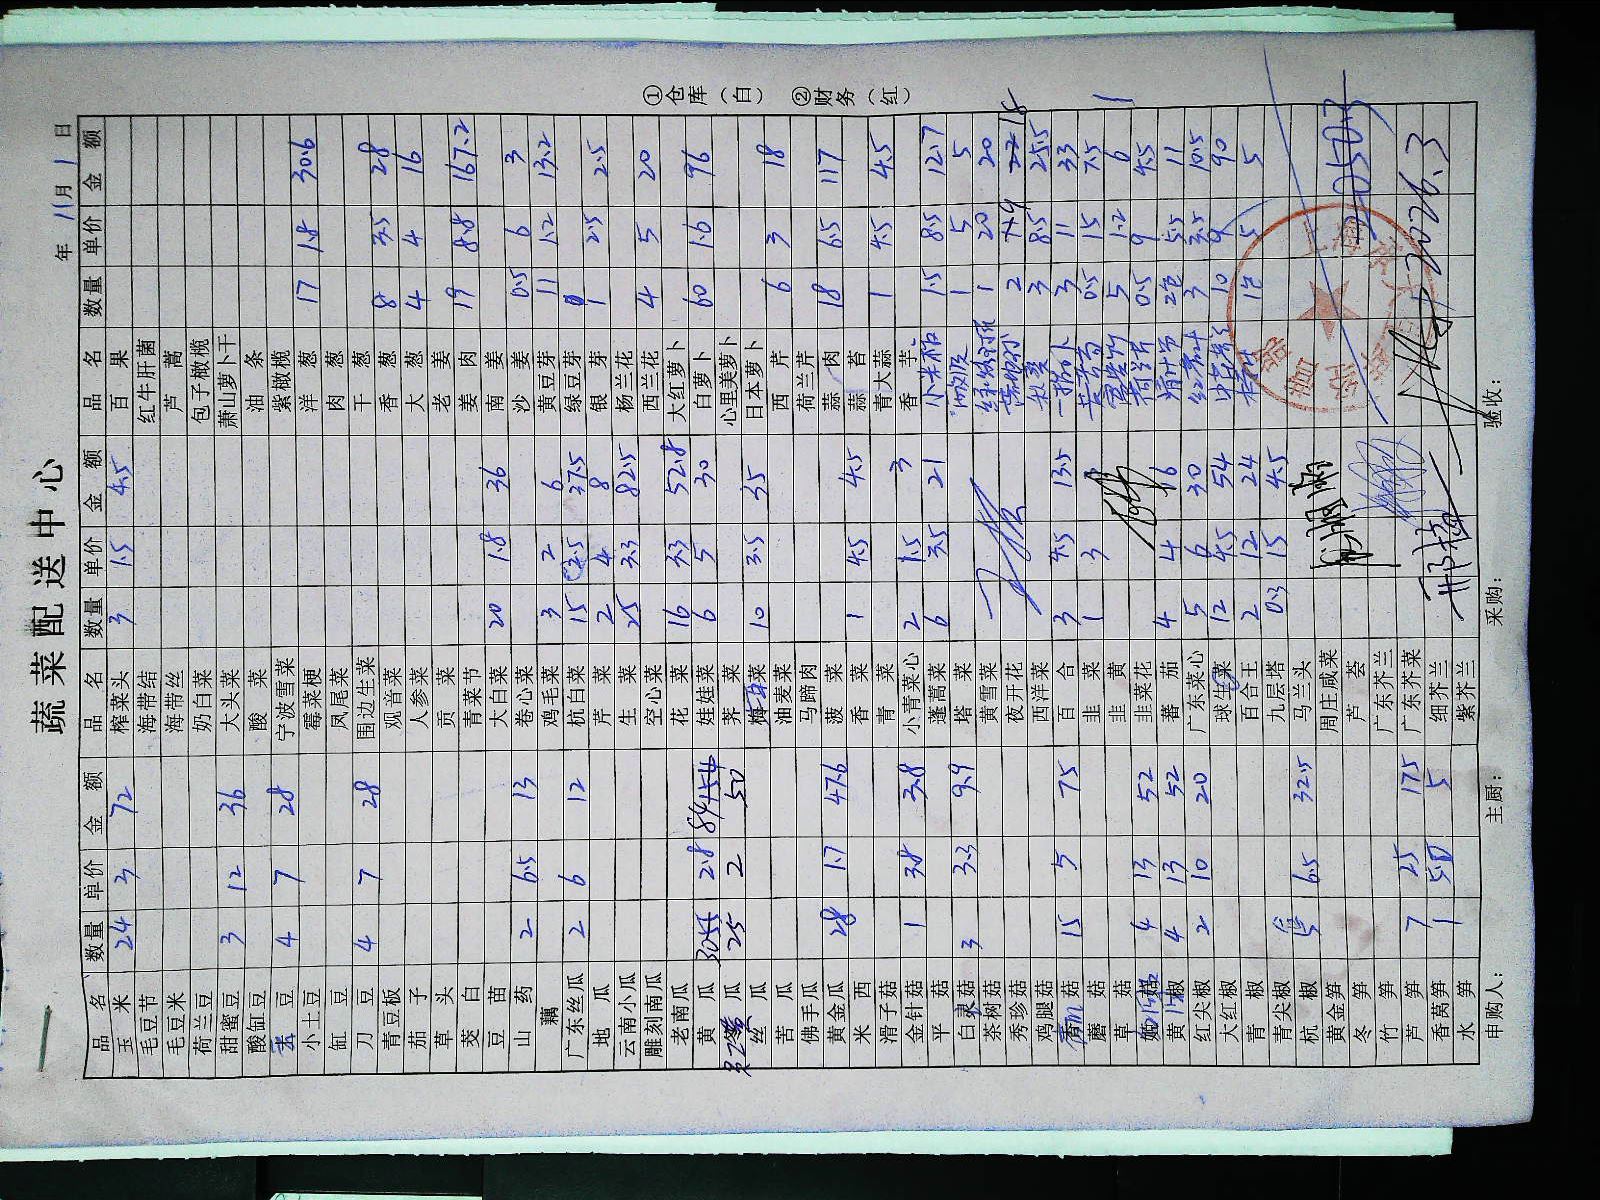 蔬菜配送中心
年 11月 1 日
品名 数量 单价 金额 品名 数量 单价 金额 品名 数量 单价 金额
玉米 24 3 72 榨菜头 3 1.5 4.5 百果
毛豆节 海带结 红牛肝菌
毛豆米 海带丝 芦蒿
荷兰豆 奶白菜 包子橄榄
甜蜜豆 3 12 36 大头菜 萧山萝卜干
酸缸豆 酸菜 油条
豆 4 7 28 宁波雪菜 紫橄榄
小土豆 霉菜梗 洋葱 17 1.8 30.6
缸豆 凤尾菜 肉葱
刀豆 4 7 28 围边生菜 干葱
青豆板 观音菜 香葱 8 3.5 28
茄子 人参菜 大葱 4 4 16
草头 贡菜 老姜
茭白 青菜节 姜肉 19 8.8 167.2
豆苗 大白菜 20 1.8 36 南姜
山药 2 6.5 13 卷心菜 沙姜 0.5 6 3
藕 鸡毛菜 3 2 6 黄豆芽 11 1.2 13.2
广东丝瓜 2 6 12 杭白菜 15 2.5 37.5 绿豆芽
地瓜 芹菜 2 4 8 银芽 1 2.5 2.5
云南小瓜 生菜 25 3.3 82.5 杨兰花
雕刻南瓜 空心菜 西兰花 4 5 20
老南瓜 花菜 16 3.3 52.8 大红萝卜
黄瓜 2.8 84 娃娃菜 6 5 30 白萝卜 60 1.6 96
瓜 25 2 50 荠菜 心里美萝卜
丝瓜 菜 10 3.5 35 日本萝卜
苦瓜 油麦菜 西芹 6 3 18
佛手瓜 马蹄肉 荷兰芹
黄金瓜 28 1.7 47.6 菠菜 蒜肉 18 6.5 117
米西 香菜 1 4.5 4.5 蒜苔
滑子菇 青菜 青大蒜 1 4.5 4.5
金针菇 1 3.8 3.8 小青菜心 2 1.5 3 香芋
平菇 蓬蒿菜 6 3.5 21 小米椒 1.5 8.5 12.7
白灵菇 3 3.3 9.9 塔菜 1 5 5
茶树菇 黄雪菜 1 20 20
秀珍菇 夜开花 2 9 18
鸡腿菇 西洋菜 秋葵 3 8.5 25.5
菇 15 5 75 百合 3 4.5 13.5 3 11 33
蘑菇 韭菜 1 3 0.5 15 7.5
草菇 韭黄 5 1.2 6
菇 4 13 52 韭菜花 0.5 9 4.5
黄椒 4 13 52 番茄 4 4 16 2包 5.5 11
红尖椒 2 10 20 广东菜心 5 6 30 3 3.5 10.5
大红椒 球生菜 12 4.5 54 10 9 90
青椒 百合王 2 12 24 5 5
青尖椒 九层塔 0.3 15 4.5
杭椒 5 6.5 32.5 马兰头
黄金笋 周庄咸菜
冬笋 芦荟
竹笋 广东芥兰
芦笋 7 25 175 广东芥菜
香莴笋 1 5 5 细芥兰 2026.3
水笋 紫芥兰
申购人： 主厨： 采购： 验收：
①仓库（白） ②财务（红）